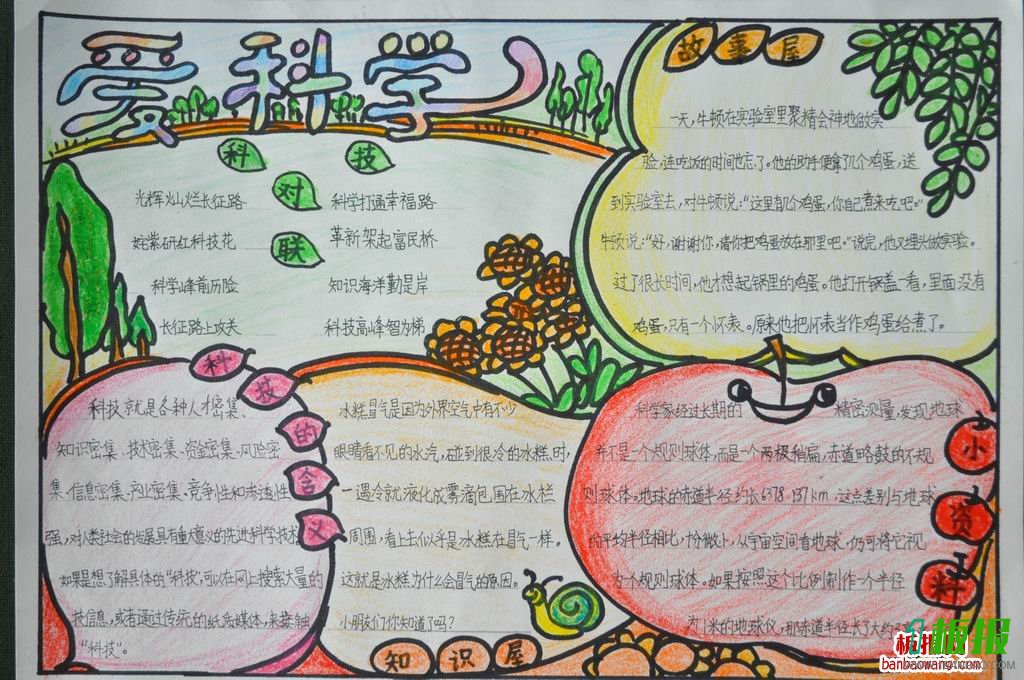 爱科学
科技对联
光辉灿烂长征路 科学打通幸福路
姹紫研红科技花 革新架起富民桥
科学峰前历险 知识海洋勤是岸
长征路上攻关 科技高峰智为梯
故事屋
一天，牛顿在实验室里聚精会神地做实
验，连吃饭的时间也忘了。他的助手便拿了几个鸡蛋，送
到实验室去，对牛顿说：“这里有几个鸡蛋，你自己煮来吃吧。”
牛顿说：“好，谢谢你，请你把鸡蛋放在那里吧。”说完，他又埋头做实验。
过了很长时间，他才想起锅里的鸡蛋。他打开锅盖一看，里面没有
鸡蛋，只有一个怀表。原来他把怀表当作鸡蛋给煮了。
科技的含义
科技就是各种人才密集、
知识密集、技术密集、资金密集、风险密
集、信息密集、产业密集、竞争性和渗透性
强，对人类社会的发展具有重大意义的先进科学技术
如果是想了解具体的“科技”，可以在网上搜索大量的
技信息，或者通过传统的纸质媒体，来接触
“科技”。
冰糕冒气是因为外界空气中有不少
眼睛看不见的水汽，碰到很冷的冰糕时，
一遇冷就液化成雾滴包围在冰栏
周围，看上去似乎是冰糕在冒气一样。
这就是冰糕为什么会冒气的原因。
小朋友们你知道了吗？
知识屋
小资料
科学家经过长期的精密测量，发现地球
并不是一个规则球体，而是一个两极稍扁、赤道略鼓的不规
则球体。地球的赤道半径约长6378.137km，这点差别与地球
的平均半径相比，十分微小，从宇宙空间看地球，仍可将它视
为个规则球体。如果按照这个比例制作一个半径
为1米的地球仪，那赤道半径长了大约
板报
banbaowang.com